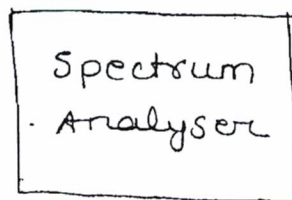 Spectrum
Analyser